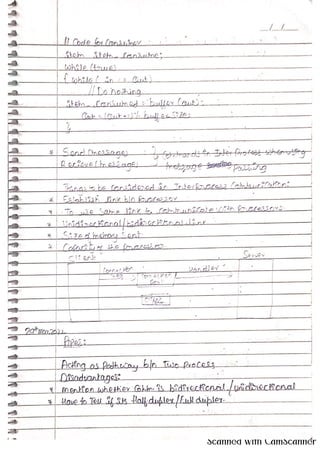 // Code for Consumer
Item Item_Consume;
While (true)
{ While ( in == out)
// Do nothing
Item_Consumed = buffer (out);
Out = (out+1)% buffer size;
}
* Send (message) } Commands in Inter Process When using
Recieve (message) message passing
Things to be considered in Interprocess Communication:
* Establish link b/n Processor
* To use Same link to Communicate with Processors
* Unidirectional/bidirectional link
* Size of memory
* Capacity
Client Server
Handler
20th Nov
Pipes:
Acting as Pathway b/n Two Process
Disadvantages:
* Mention whether Comm is bidirectional/Unidirectional
* Have to Tell if its Half duplex/Full duplex.
Scanned with CamScanner